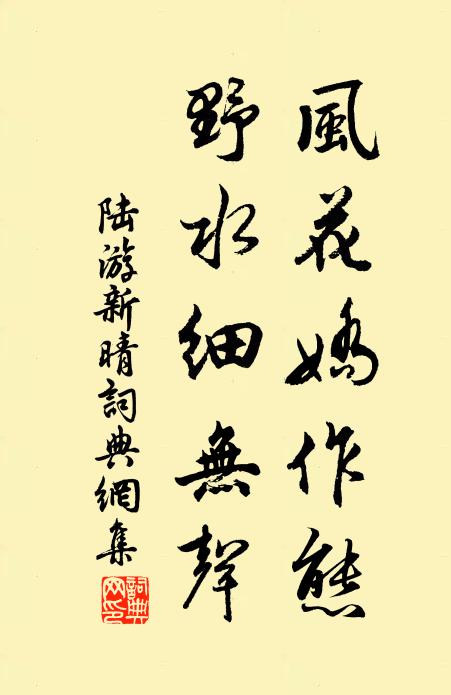 風花嬌作態
野水细無聲
陆游新晴詞典網集
詞典网印